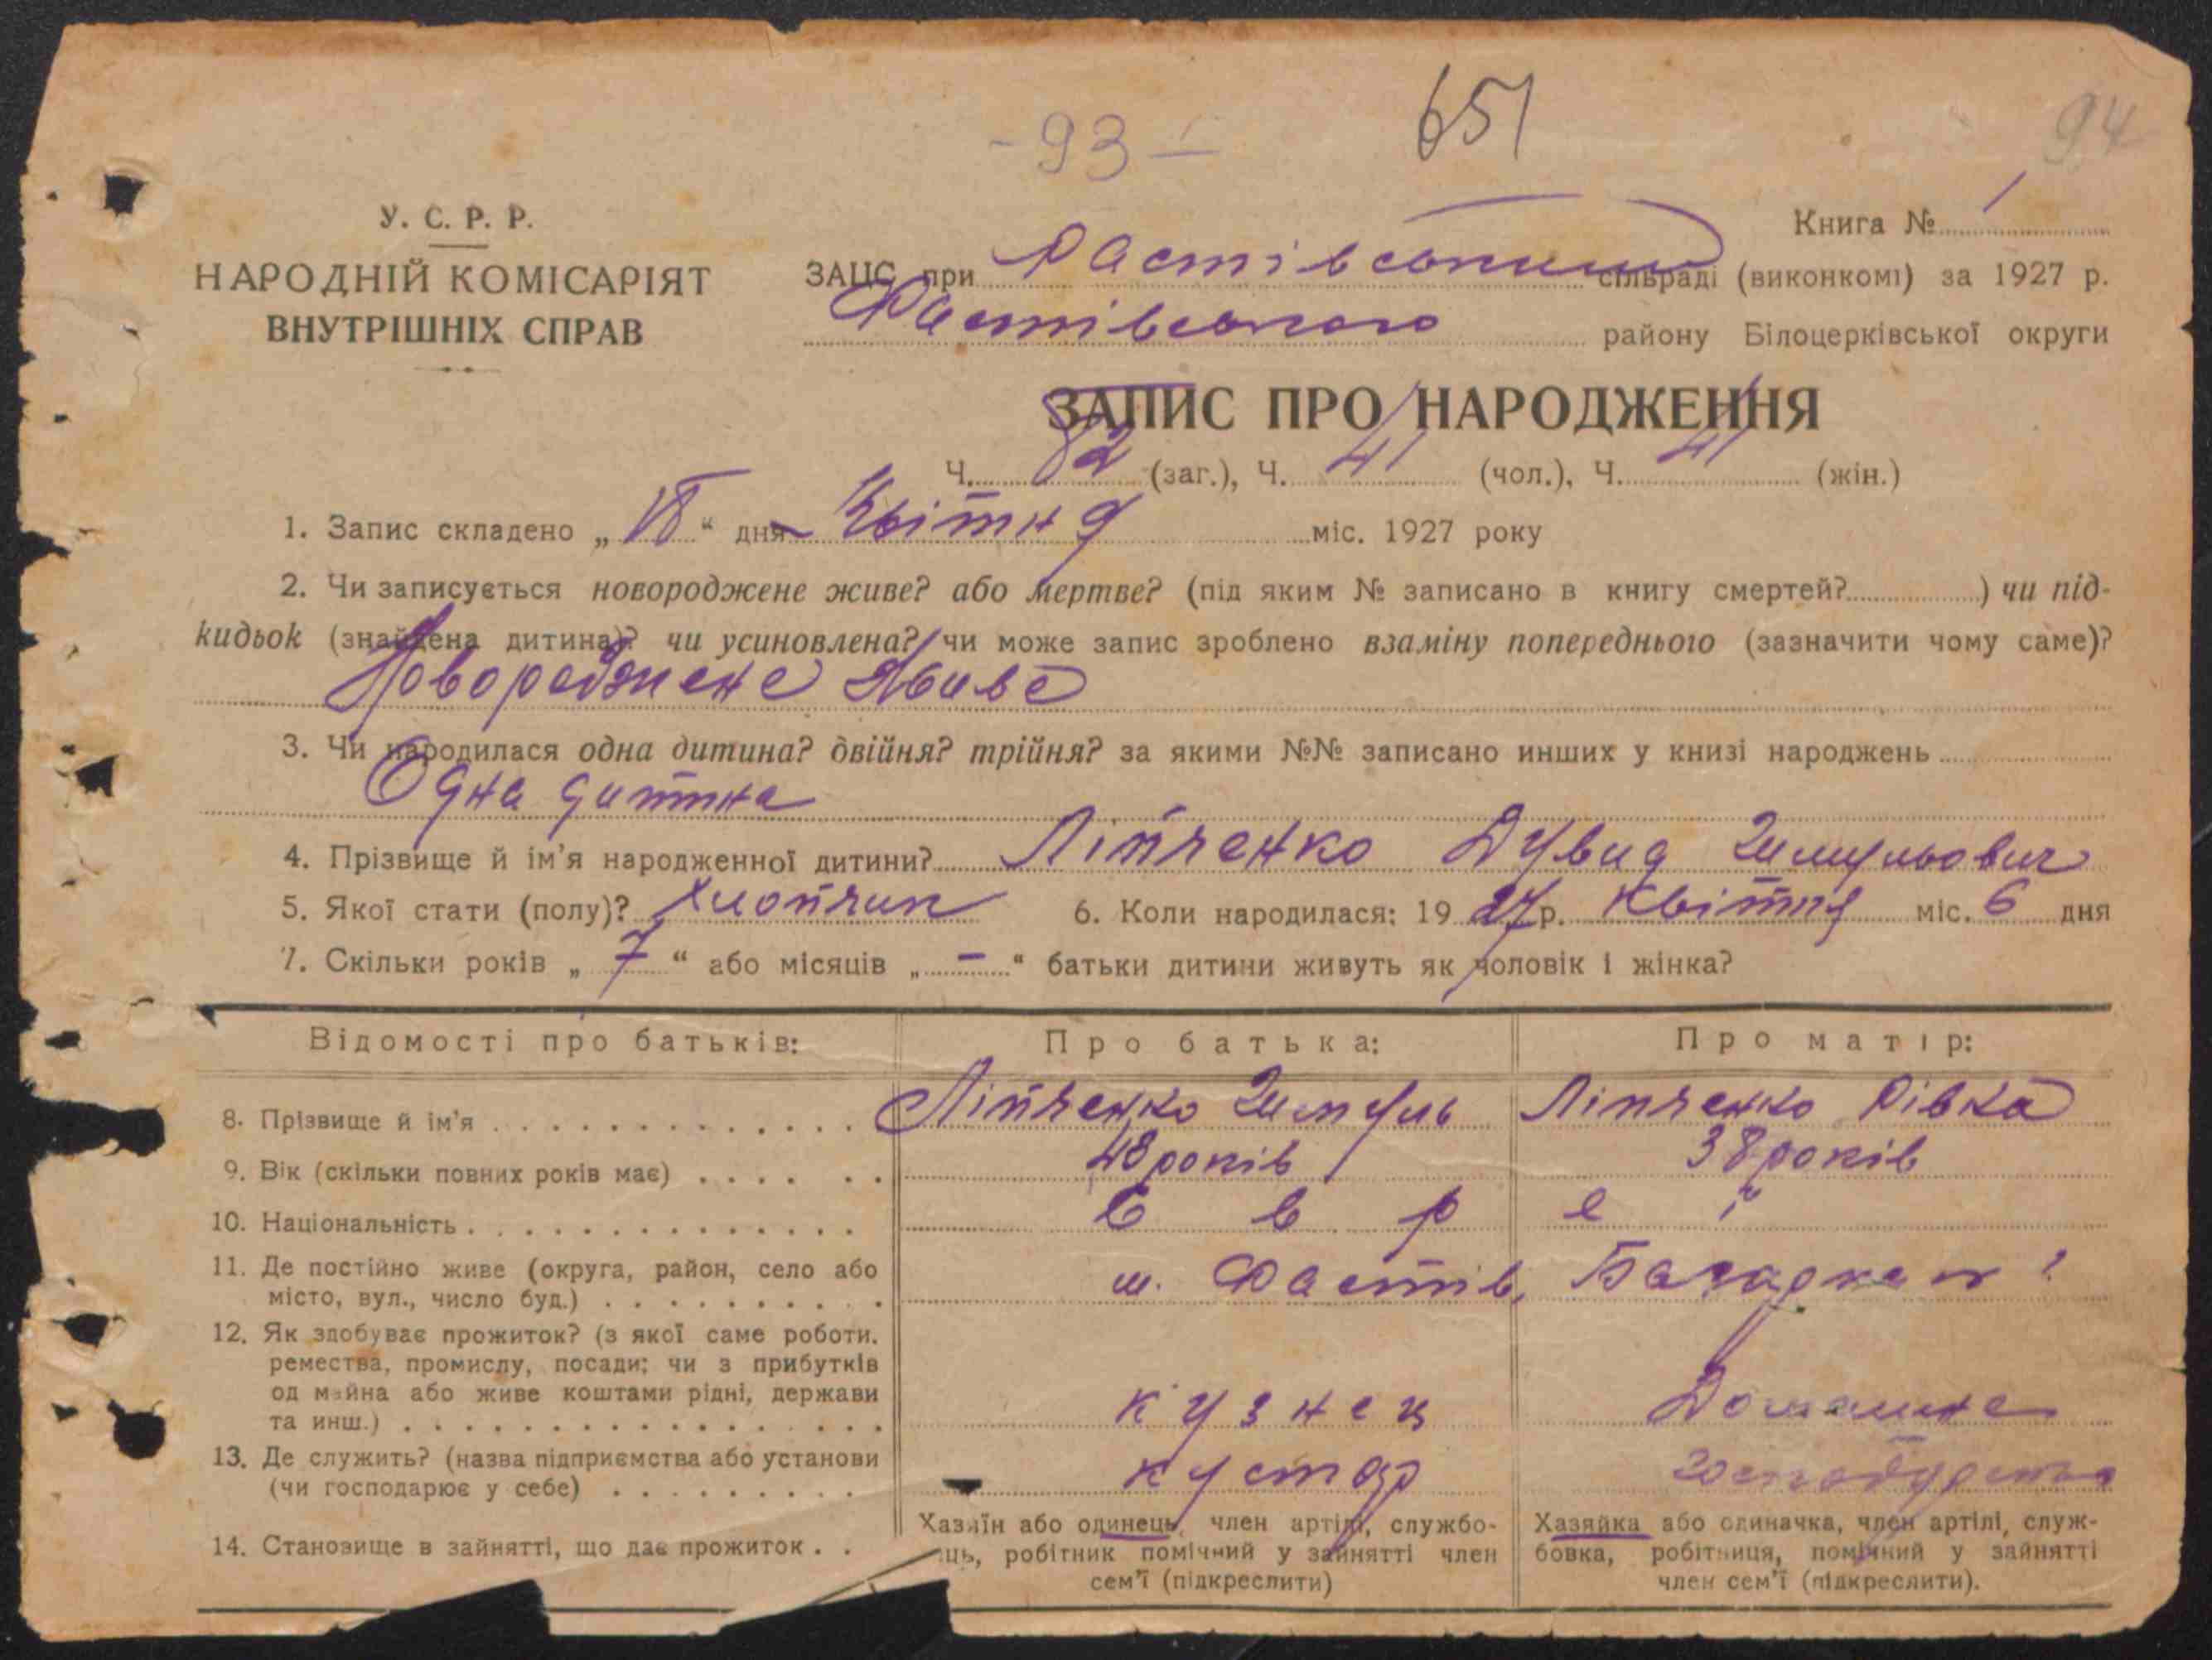 - 93 -
651
94
У. С. Р. Р.
НАРОДНІЙ КОМІСАРІЯТ
ВНУТРІШНІХ СПРАВ
Книга № 1
ЗАЦС при Фастівському сільраді (виконкомі) за 1927 р.
Фастівського району Білоцерківської округи
ЗАПИС ПРО НАРОДЖЕННЯ
Ч. 82 (заг.), Ч. 41 (чол.), Ч. 41 (жін.)
1. Запис складено „ “ дня Квітня міс. 1927 року
2. Чи записується новороджене живе? або мертве? (під яким № записано в книгу смертей? ) чи під-
кидьок (знайдена дитина)? чи усиновлена? чи може запис зроблено взаміну попереднього (зазначити чому саме)?
Новороджене Живе
3. Чи народилася одна дитина? двійня? трійня? за якими №№ записано инших у книзі народжень
Одна дитина
4. Прізвище й ім’я народженної дитини? Ліпченко Дувид Шмульович
5. Якої стати (полу)? Хлопчик 6. Коли народилася: 1927 р. Квітня міс. 6 дня
7. Скільки років „ 7 “ або місяців „ – “ батьки дитини живуть як чоловік і жінка?
Відомості про батьків: Про батька: Про матір:
8. Прізвище й ім’я Ліпченко Шмуль Ліпченко Рівка
9. Вік (скільки повних років має) 48 років 38 років
10. Національність Євреї
11. Де постійно живе (округа, район, село або
місто, вул., число буд.) м. Фастів,
12. Як здобуває прожиток? (з якої саме роботи,
ремества, промислу, посади; чи з прибутків
од майна або живе коштами рідні, держави
та инш.) кузнец Домашнє
13. Де служить? (назва підприємства або установи
(чи господарює у себе) кустар господарство
14. Становище в зайнятті, що дає прожиток
Хазяїн або одинець, член артілі, службо-
ць, робітник помічний у зайнятті член
сем’ї (підкреслити)
Хазяйка або одиначка, член артілі, служ-
бовка, робітниця, помічний у зайнятті
член сем’ї (підкреслити).